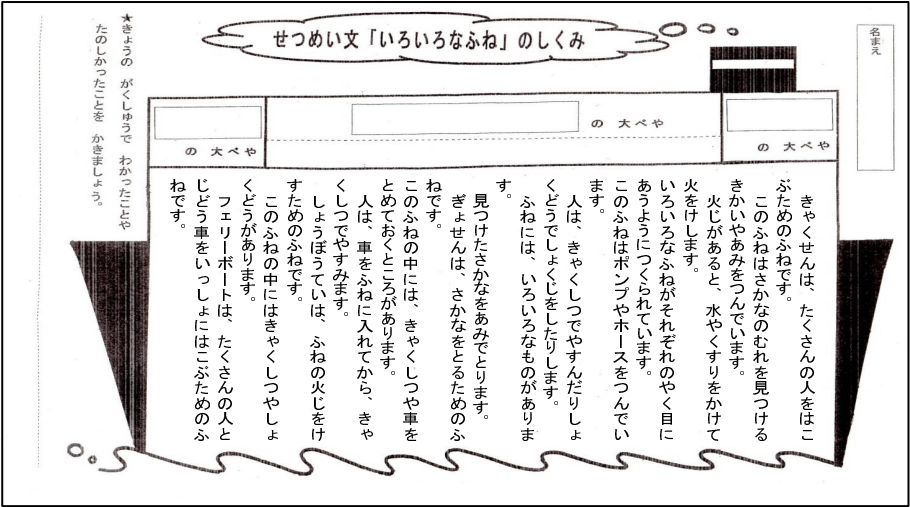 せつめい文「いろいろなふね」のしくみ
名まえ
の 大べや
の 大べや
の 大べや
きゃくせんは、たくさんの人をはこ
ぶためのふねです。
このふねはさかなのむれを見つける
きかいやあみをつんでいます。
火じがあると、水やくすりをかけて
火をけします。
いろいろなふねがそれぞれのやく目に
あうようにつくられています。
このふねはポンプやホースをつんでい
ます。
人は、きゃくしつでやすんだりしょ
くどうでしょくじをしたりします。
ふねには、いろいろなものがありま
す。
見つけたさかなをあみでとります。
ぎょせんは、さかなをとるためのふ
ねです。
このふねの中には、きゃくしつや車を
とめておくところがあります。
人は、車をふねに入れてから、きゃ
くしつでやすみます。
しょうぼうていは、ふねの火じをけ
すためのふねです。
このふねの中にはきゃくしつやしょ
くどうがあります。
フェリーボートは、たくさんの人と
じどう車をいっしょにはこぶためのふ
ねです。
★きょうの がくしゅうで わかったことや
たのしかったことを かきましょう。